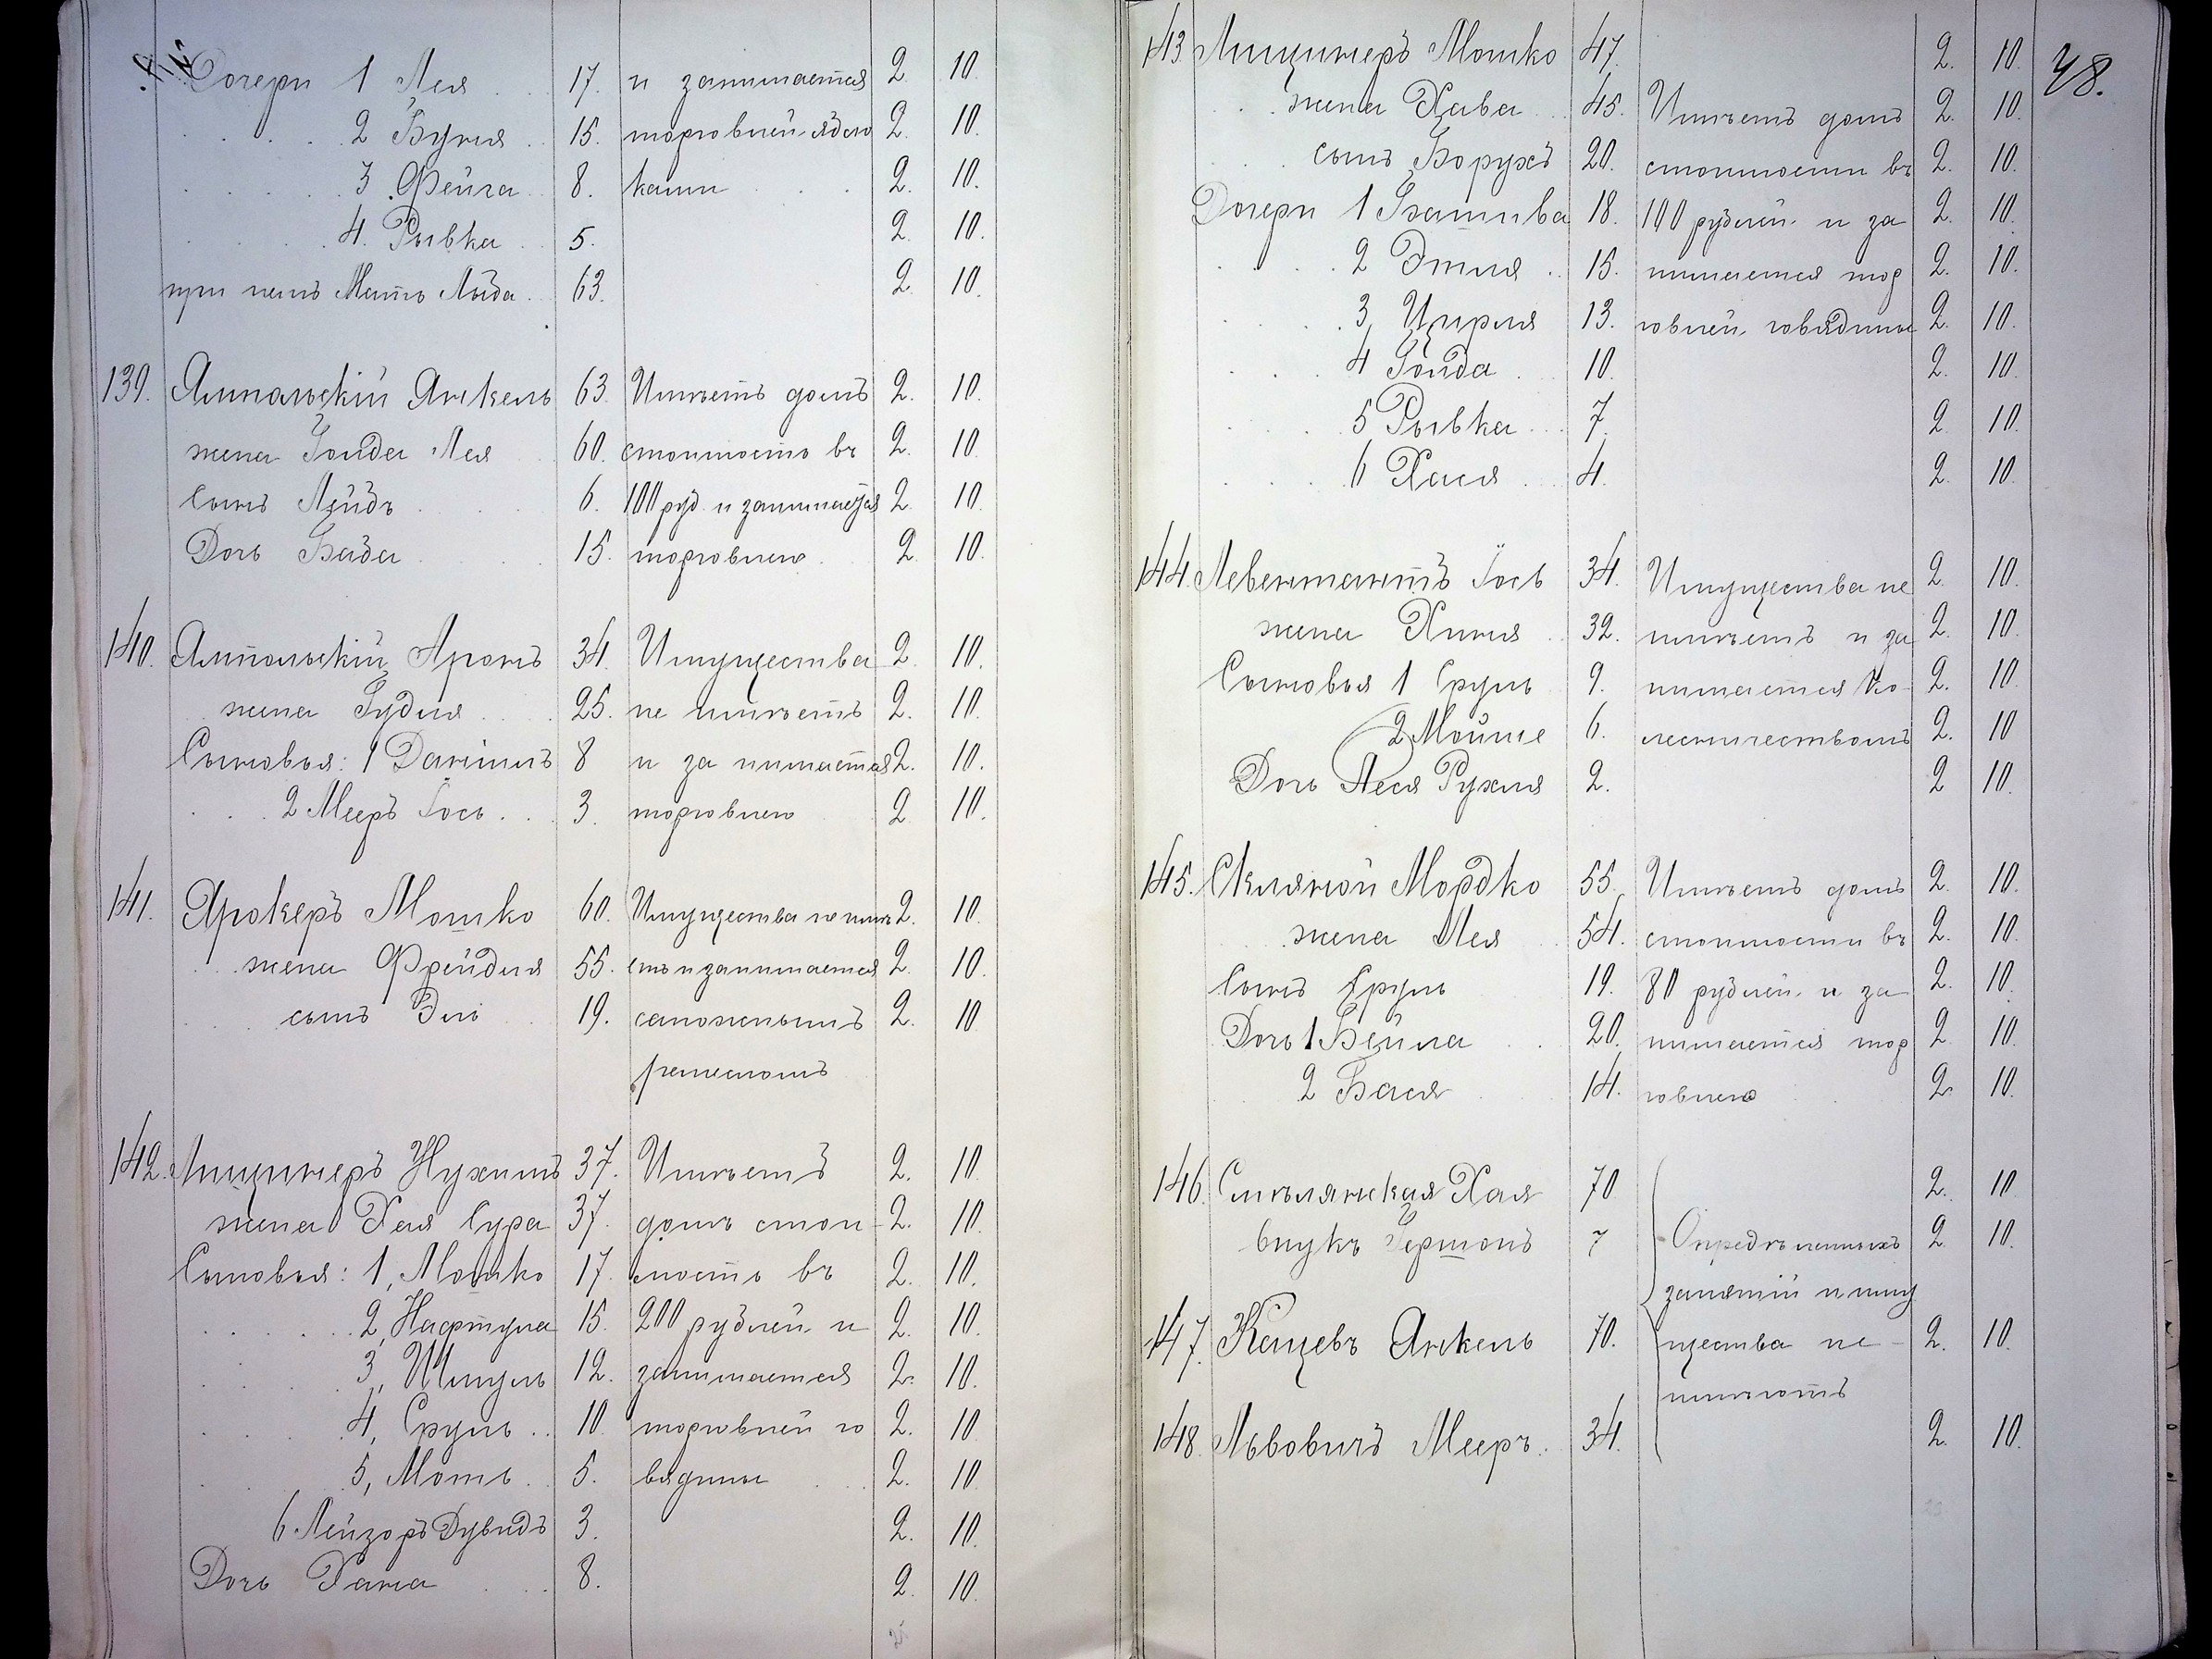 Дочери 1 Лея 17. и занимается 2. 10.
2 Буня 15. торговлей ябло 2. 10.
3 Фейга 8. ками 2. 10.
4. Рывка 5. 2. 10.
при немъ Мать 63. 2. 10.
139. Ямпольскій Янкель 63 Имѣетъ домъ 2. 10.
жена Гольда Лея 60. стоимость въ 2. 10.
сынъ 6. 100 руб. и занимается 2. 10.
Дочь 15. торговлею 2 10.
140. Ямпольскій Аронъ 34. Имущества 2. 10.
жена 25. не имѣетъ 2. 10.
Сыновья: 1 Данiилъ 8 и за нимается 2. 10.
2 Мееръ Іось 3. торговлею 2 10.
141. Ярокеръ Мошко 60. Имущества не имѣ 2. 10.
жена Фрейдля 55. етъ и занимается 2. 10.
сынъ Эль 19. сапожнымъ 2. 10
ремесломъ
142. Лищинеръ Нухимъ 37. Имѣетъ 2. 10
жена Хая Сура 37. домъ стои- 2. 10.
Сыновья: 1, Мошко 17. мость въ 2. 10.
2, Нафтула 15. 200 рублей и 2. 10.
3, Шмуль 12. занимается 2. 10.
4, Сруль 10. торговлей го 2. 10
5, Моть 5. вядины 2. 10
6 Лейзоръ Дувидъ 3. 2. 10
Дочь Хана 8. 2. 10
48.
143 Лищинеръ Мошко 47. 2. 10.
жена Хава 45. Имѣетъ домъ 2. 10.
сынъ Борухъ 20. стоимости въ 2. 10.
Дочери 1 Батшва 18. 100 рублей и за 2. 10.
2 Этля 15. нимается тор 2. 10.
3, Цирля 13. говлей говядины 2. 10.
4 Гольда 10. 2. 10.
5 Рывка 7. 2 10.
6 Хася 4. 2. 10.
144. Левентантъ Іось 34. Имущества не 2. 10.
жена Хиня 32. имѣетъ и за 2. 10.
Сыновья 1 Сруль 9. нимается ко- 2. 10
2 Мойше 6. лесничествомъ 2. 10
Дочь Песя Рухля 2. 2 10.
145. Скляной Мордко 55. Имѣетъ домъ 2. 10.
жена Лея 54. стоимости въ 2. 10.
сынъ Сруль 19. 80 рублей и за 2. 10.
Дочь 1 Бейла 20. нимается тор 2 10.
2 Бася 14. говлею 2. 10.
146. Смѣлянская Хая 70 2. 10
внукъ Гершонъ 7 Опредѣленныхъ 2. 10.
занятій и иму
147. Кацевъ Янкель 70. щества не- 2. 10.
имѣютъ
148. Львовичъ Мееръ. 34. 2. 10.